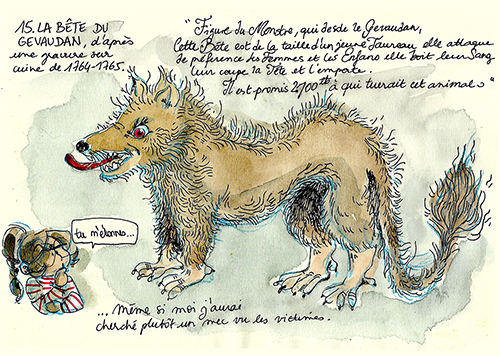 15. LA BÊTE DU
GEVAUDAN, d'après
une gravure sur
cuivre de 1764-1765.
"Figure du Monstre, qui desole le Gevaudan,
Cette Bête est de la taille d'un jeune Taureau elle attaque
de préférence les Femmes et les Enfans elle boit leur Sang
leur coupe la Tête et l'emporte.
Il est promis 2700 ₶ à qui tuerait cet animal."
tu m'étonnes...
... même si moi j'aurai
cherché plutôt un mec vu les victimes.